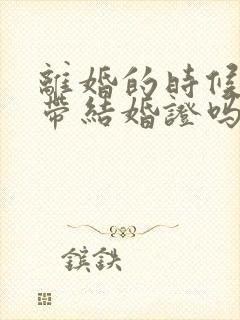 離婚的時候
帶結婚證嗎
鎩鉄